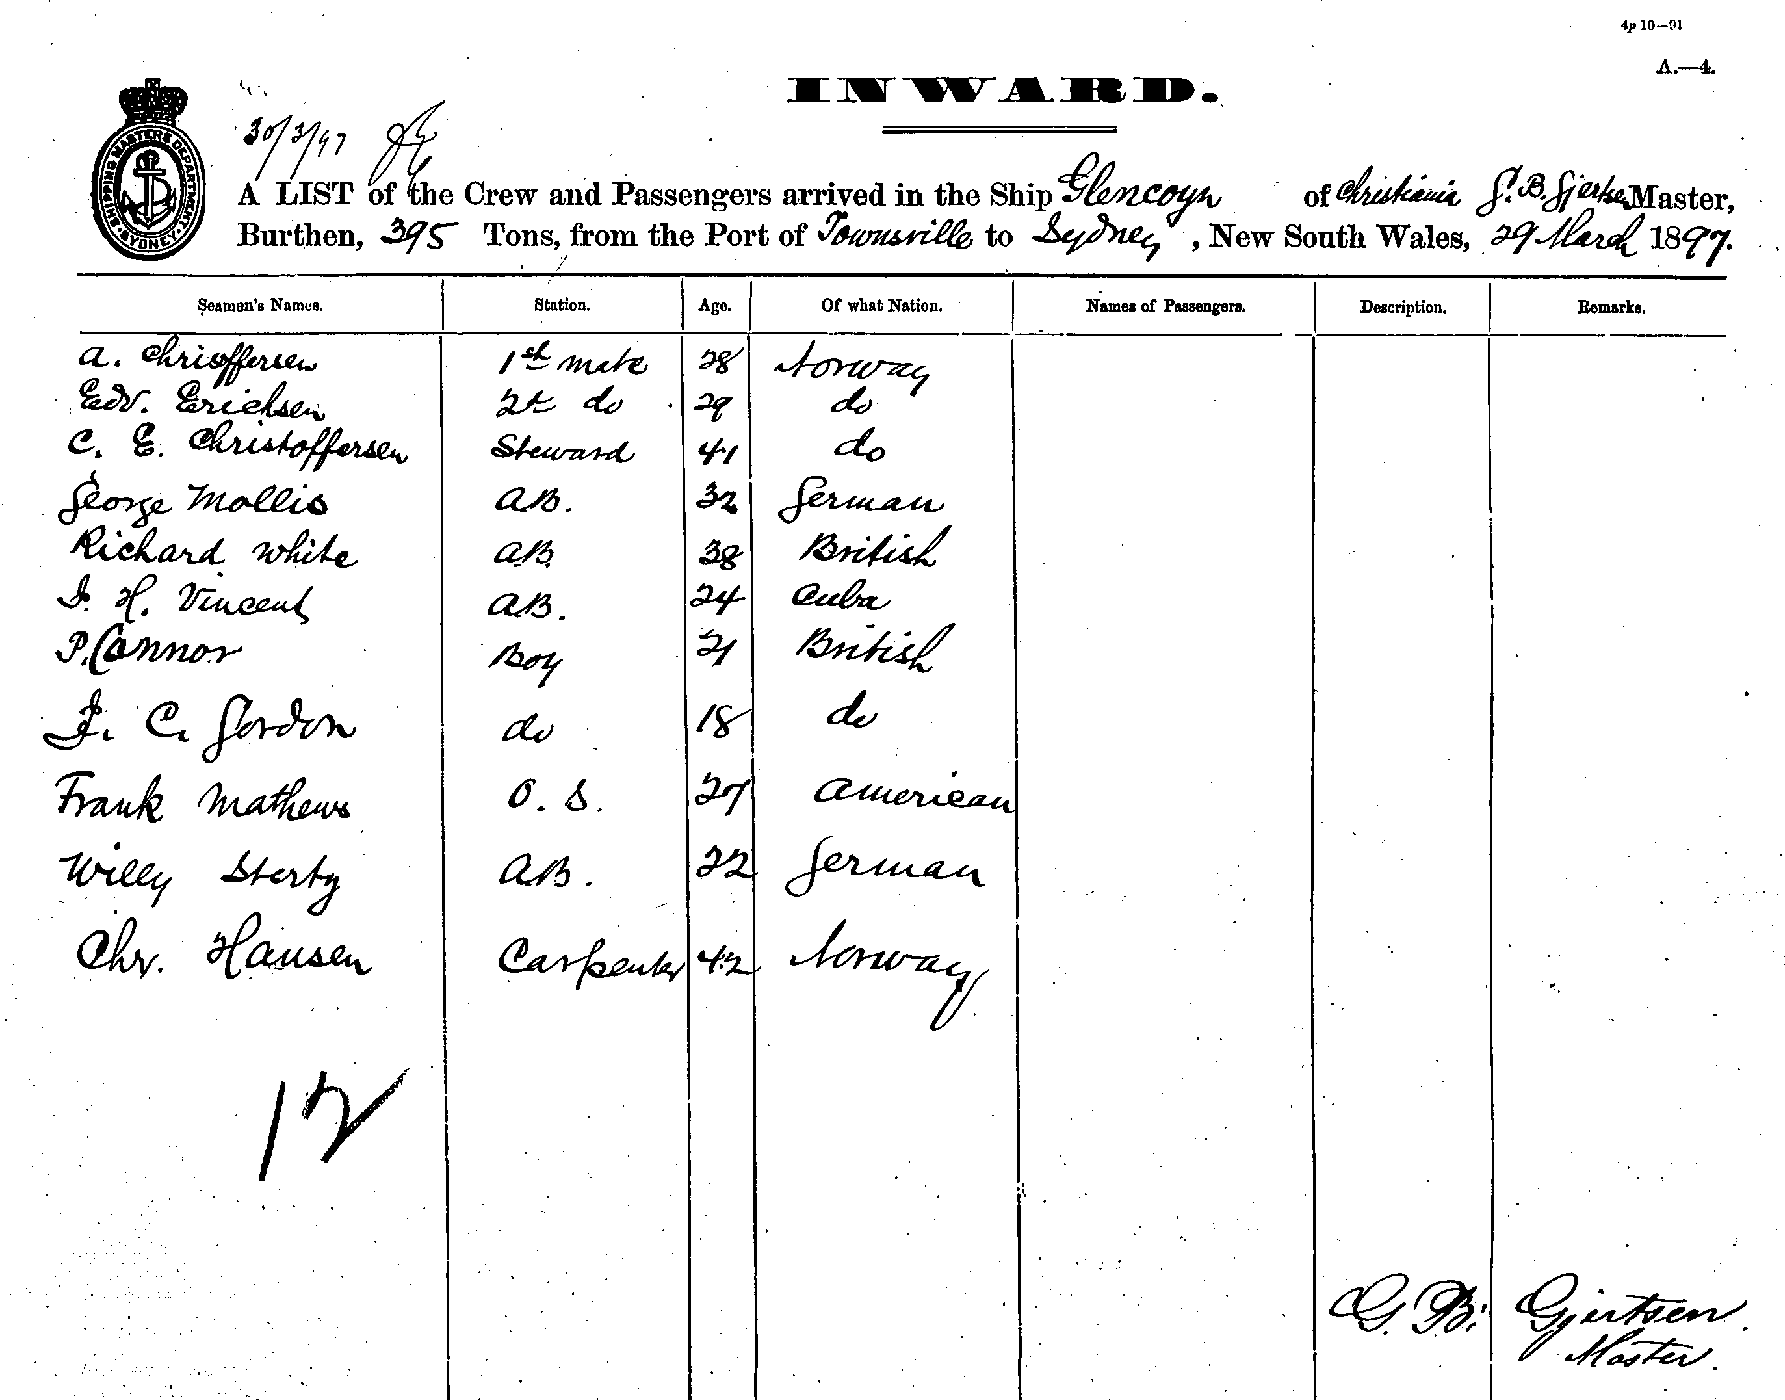 4p 10—91
A.—4.
INWARD.
SHIPPING MASTERS DEPARTMENT
SYDNEY
30/3/97
A LIST of the Crew and Passengers arrived in the Ship Glencoyn of Christiania G. B. Gjertsen Master,
Burthen, 395 Tons, from the Port of Townsville to Sydney, New South Wales, 29 March 1897.
Seamen's Names. Station. Age. Of what Nation. Names of Passengers. Description. Remarks.
A. Chrisoffersen 1st mate 28 Norway
Edv. Erichsen 2t do 29 do
C. E. Christoffersen Steward 41 do
George Mollis AB. 32 German
Richard White AB 38 British
J. H. Vincent AB. 24 Cuba
P. Connor Boy 21 British
J. C. Gordon do 18 do
Frank Mathews O. S. 27 American
Willy Sterty AB. 22 German
Chr. Hansen Carpenter 42 Norway
12
G. B. Gjertsen
Master.